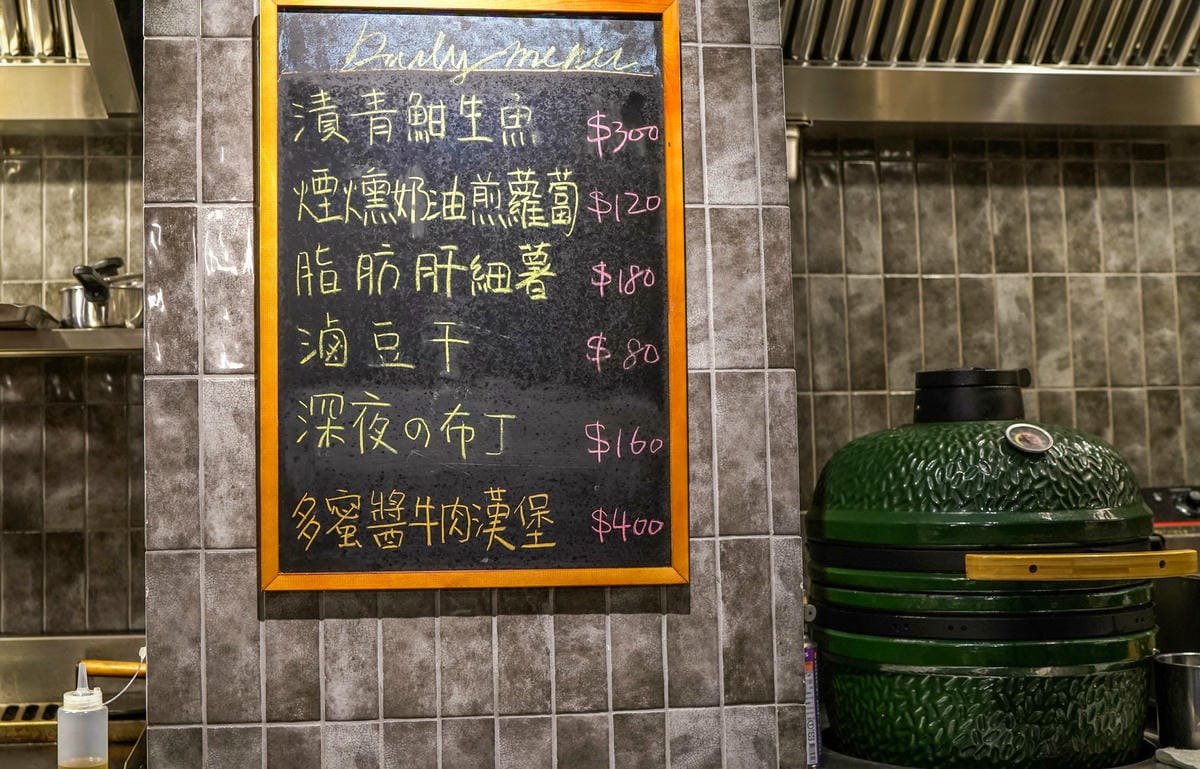 Daily menu
漬青魽生魚 $300
煙燻奶油煎蘿蔔 $120
脂肪肝細薯 $180
滷豆干 $80
深夜の布丁 $160
多蜜醬牛肉漢堡 $400